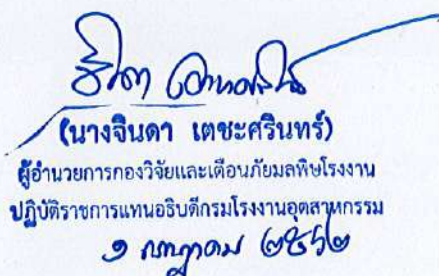 (นางจินดา เตชะศรินทร์)
ผู้อำนวยการกองวิจัยและเตือนภัยมลพิษโรงงาน
ปฏิบัติราชการแทนอธิบดีกรมโรงงานอุตสาหกรรม
๑ กรกฎาคม ๒๕๖๒